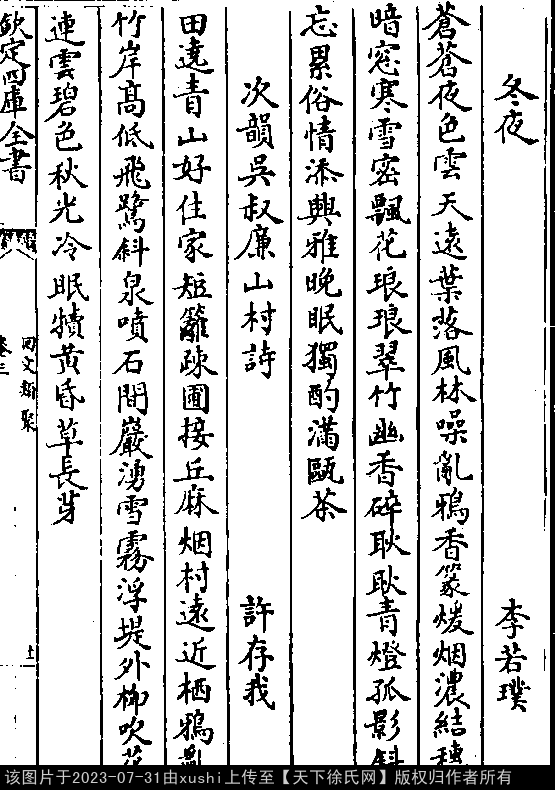 冬夜 李若璞
蒼蒼夜色雲天遠葉落風林噪亂鴉香篆煖烟濃結穗
暗窓寒雪密飄花琅琅翠竹幽香碎耿耿青燈孤影斜
忘累俗情添興雅晚眠獨酌滿甌茶
次韻吳叔廉山村詩 許存我
田遶青山好住家短籬疎圃接丘麻烟村遠近栖鴉亂
竹岸高低飛鷺斜泉噴石間巖湧雪霧浮堤外柳吹花
連雲碧色秋光冷眠犢黃昏草長芽
欽定四庫全書
回文類聚
卷三
十一
该图片于2023-07-31由xushi上传至【天下徐氏网】版权归作者所有